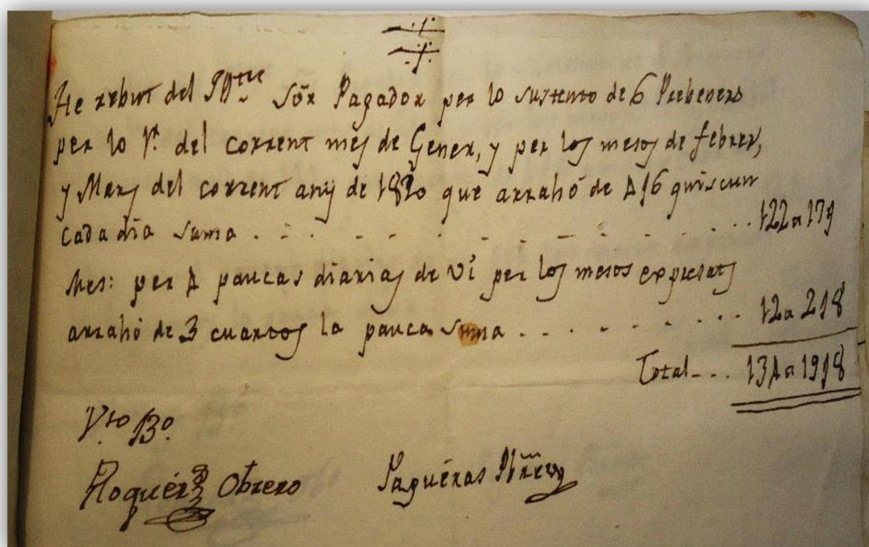 He rebut del Il.tre Sór Pagador per lo sustento de 6 Prebeners
per lo 1r. del corrent mes de Gener, y per los mesos de febrer,
y Mars del corrent any de 1820 que arrahó de 4 s 6 quiscun
cada dia suma . . . . . . . . . . 122 ₶ 17 s
Mes: per 4 paucas diarias de vi per los mesos expresats
arrahó de 3 cuartos la pauca suma . . . . . . . . 12 ₶ 2 s 8
Total . . . 134 ₶ 19 s 8
V.to B.o
Roquér Obrero Saguéras